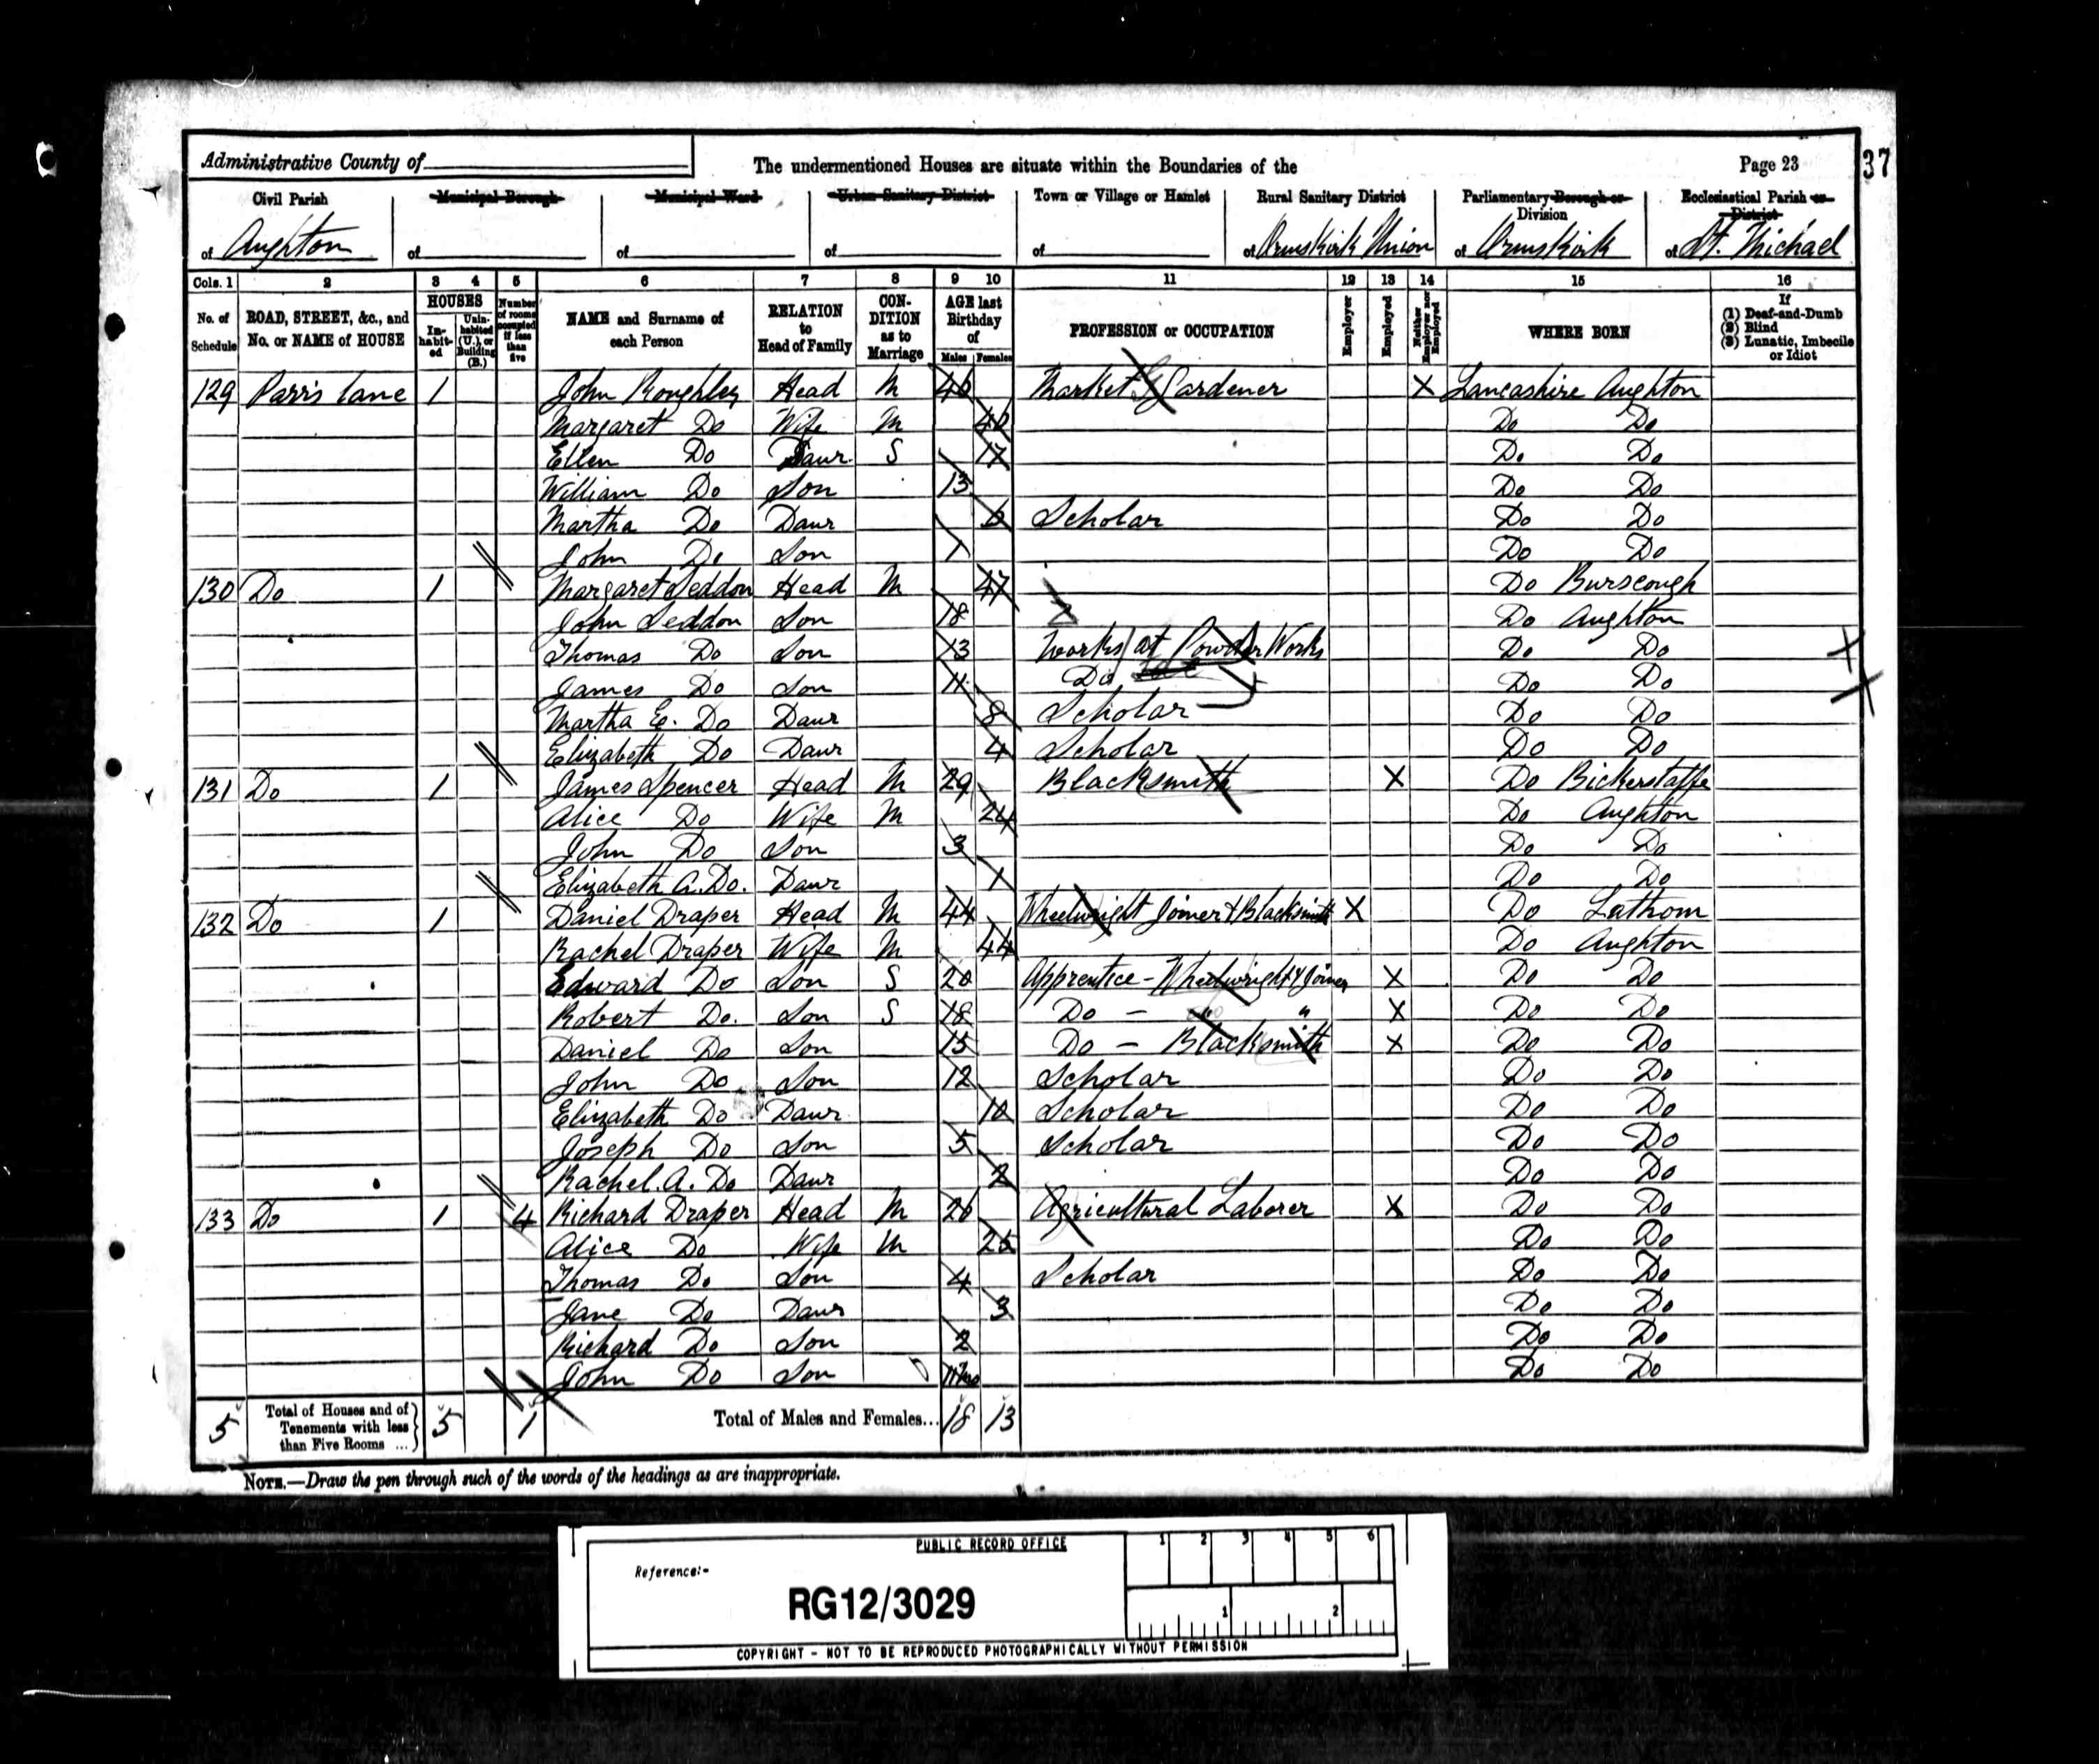 Administrative County of
The undermentioned Houses are situate within the Boundaries of the
Page 23
37
Civil Parish
Municipal Borough
Municipal Ward
Urban Sanitary District
Town or Village or Hamlet
Rural Sanitary District
Parliamentary Borough or Division
Ecclesiastical Parish or District
of Aughton
of
of
of
of
of Ormskirk Union
of Ormskirk
of St. Michael
Cols. 1 2 3 4 5 6 7 8 9 10 11 12 13 14 15 16
No. of Schedule
ROAD, STREET, &c., and No. or NAME of HOUSE
HOUSES
In-habit-ed
Unin-habited (U.), or Building (B.)
Number of rooms occupied if less than five
NAME and Surname of each Person
RELATION to Head of Family
CON-DITION as to Marriage
AGE last Birthday of
Males Females
PROFESSION or OCCUPATION
Employer
Employed
Neither Employer nor Employed
WHERE BORN
If
(1) Deaf-and-Dumb
(2) Blind
(3) Lunatic, Imbecile or Idiot
129 Parrs lane 1 John Roughley Head M 46 Market Gardener X Lancashire Aughton
Margaret Do Wife M Do Do
Ellen Do Daur S 17 Do Do
William Do Son 13 Do Do
Martha Do Daur 6 Scholar Do Do
John Do Son 1 Do Do
130 Do 1 Margaret Seddon Head M 47 Do Burscough
John Seddon Son 18 Do Aughton
Thomas Do Son 13 Works at Powder Works Do Do
James Do Son 11 Do Do Do
Martha E. Do Daur 8 Scholar Do Do
Elizabeth Do Daur 4 Scholar Do Do
131 Do 1 James Spencer Head M 29 Blacksmith X Do Bickerstaffe
Alice Do Wife M 24 Do Aughton
John Do Son 3 Do Do
Elizabeth A. Do. Daur 1 Do Do
132 Do 1 Daniel Draper Head M 44 Wheelwright Joiner & Blacksmith X Do Lathom
Rachel Draper Wife M 44 Do Aughton
Edward Do Son S 20 Apprentice - Wheelwright & Joiner X Do Do
Robert Do. Son S 18 Do - " " X Do Do
Daniel Do Son 15 Do - Blacksmith X Do Do
John Do Son 12 Scholar Do Do
Elizabeth Do Daur 10 Scholar Do Do
Joseph Do Son 5 Scholar Do Do
Rachel. A. Do Daur 2 Do Do
133 Do 1 4 Richard Draper Head M 26 Agricultural Laborer X Do Do
Alice Do Wife M Do Do
Thomas Do Son 4 Scholar Do Do
Jane Do Daur 3 Do Do
Richard Do Son 2 Do Do
John Do Son Do Do
5 Total of Houses and of Tenements with less than Five Rooms ... 5 1 Total of Males and Females... 18 13
NOTE.—Draw the pen through such of the words of the headings as are inappropriate.
PUBLIC RECORD OFFICE
1 2 3 4 5 6
Reference:-
RG12/3029
1 2
COPYRIGHT - NOT TO BE REPRODUCED PHOTOGRAPHICALLY WITHOUT PERMISSION